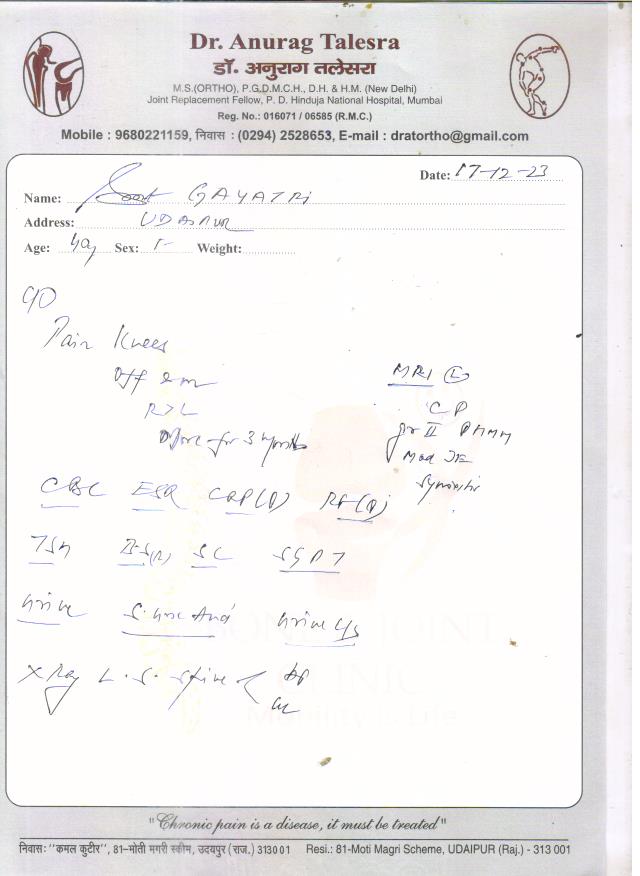 Dr. Anurag Talesra
डॉ. अनुराग तलेसरा
M.S.(ORTHO), P.G.D.M.C.H., D.H. & H.M. (New Delhi)
Joint Replacement Fellow, P. D. Hinduja National Hospital, Mumbai
Reg. No.: 016071 / 06585 (R.M.C.)
Mobile : 9680221159, निवास : (0294) 2528653, E-mail : dratortho@gmail.com
Date: 17-12-23
Name: GAYATRI
Address: UDAIPUR
Age: Sex: Weight:
C/O
Pain Knees
R>L
More for 3 months
MRI (L)
CP
gr II PHMM
Mod JE
Synovitis
CBC ESR CRP(Q) RF(Q)
TSH BS(R) SC SGPT
Urine S. Uric Acid Urine C/S
X Ray L.S. Spine
BONE & JOINT
CLINIC
Mobility is Life
"Chronic pain is a disease, it must be treated"
निवास: "कमल कुटीर", 81-मोती मगरी स्कीम, उदयपुर (राज.) 313001 Resi.: 81-Moti Magri Scheme, UDAIPUR (Raj.) - 313 001